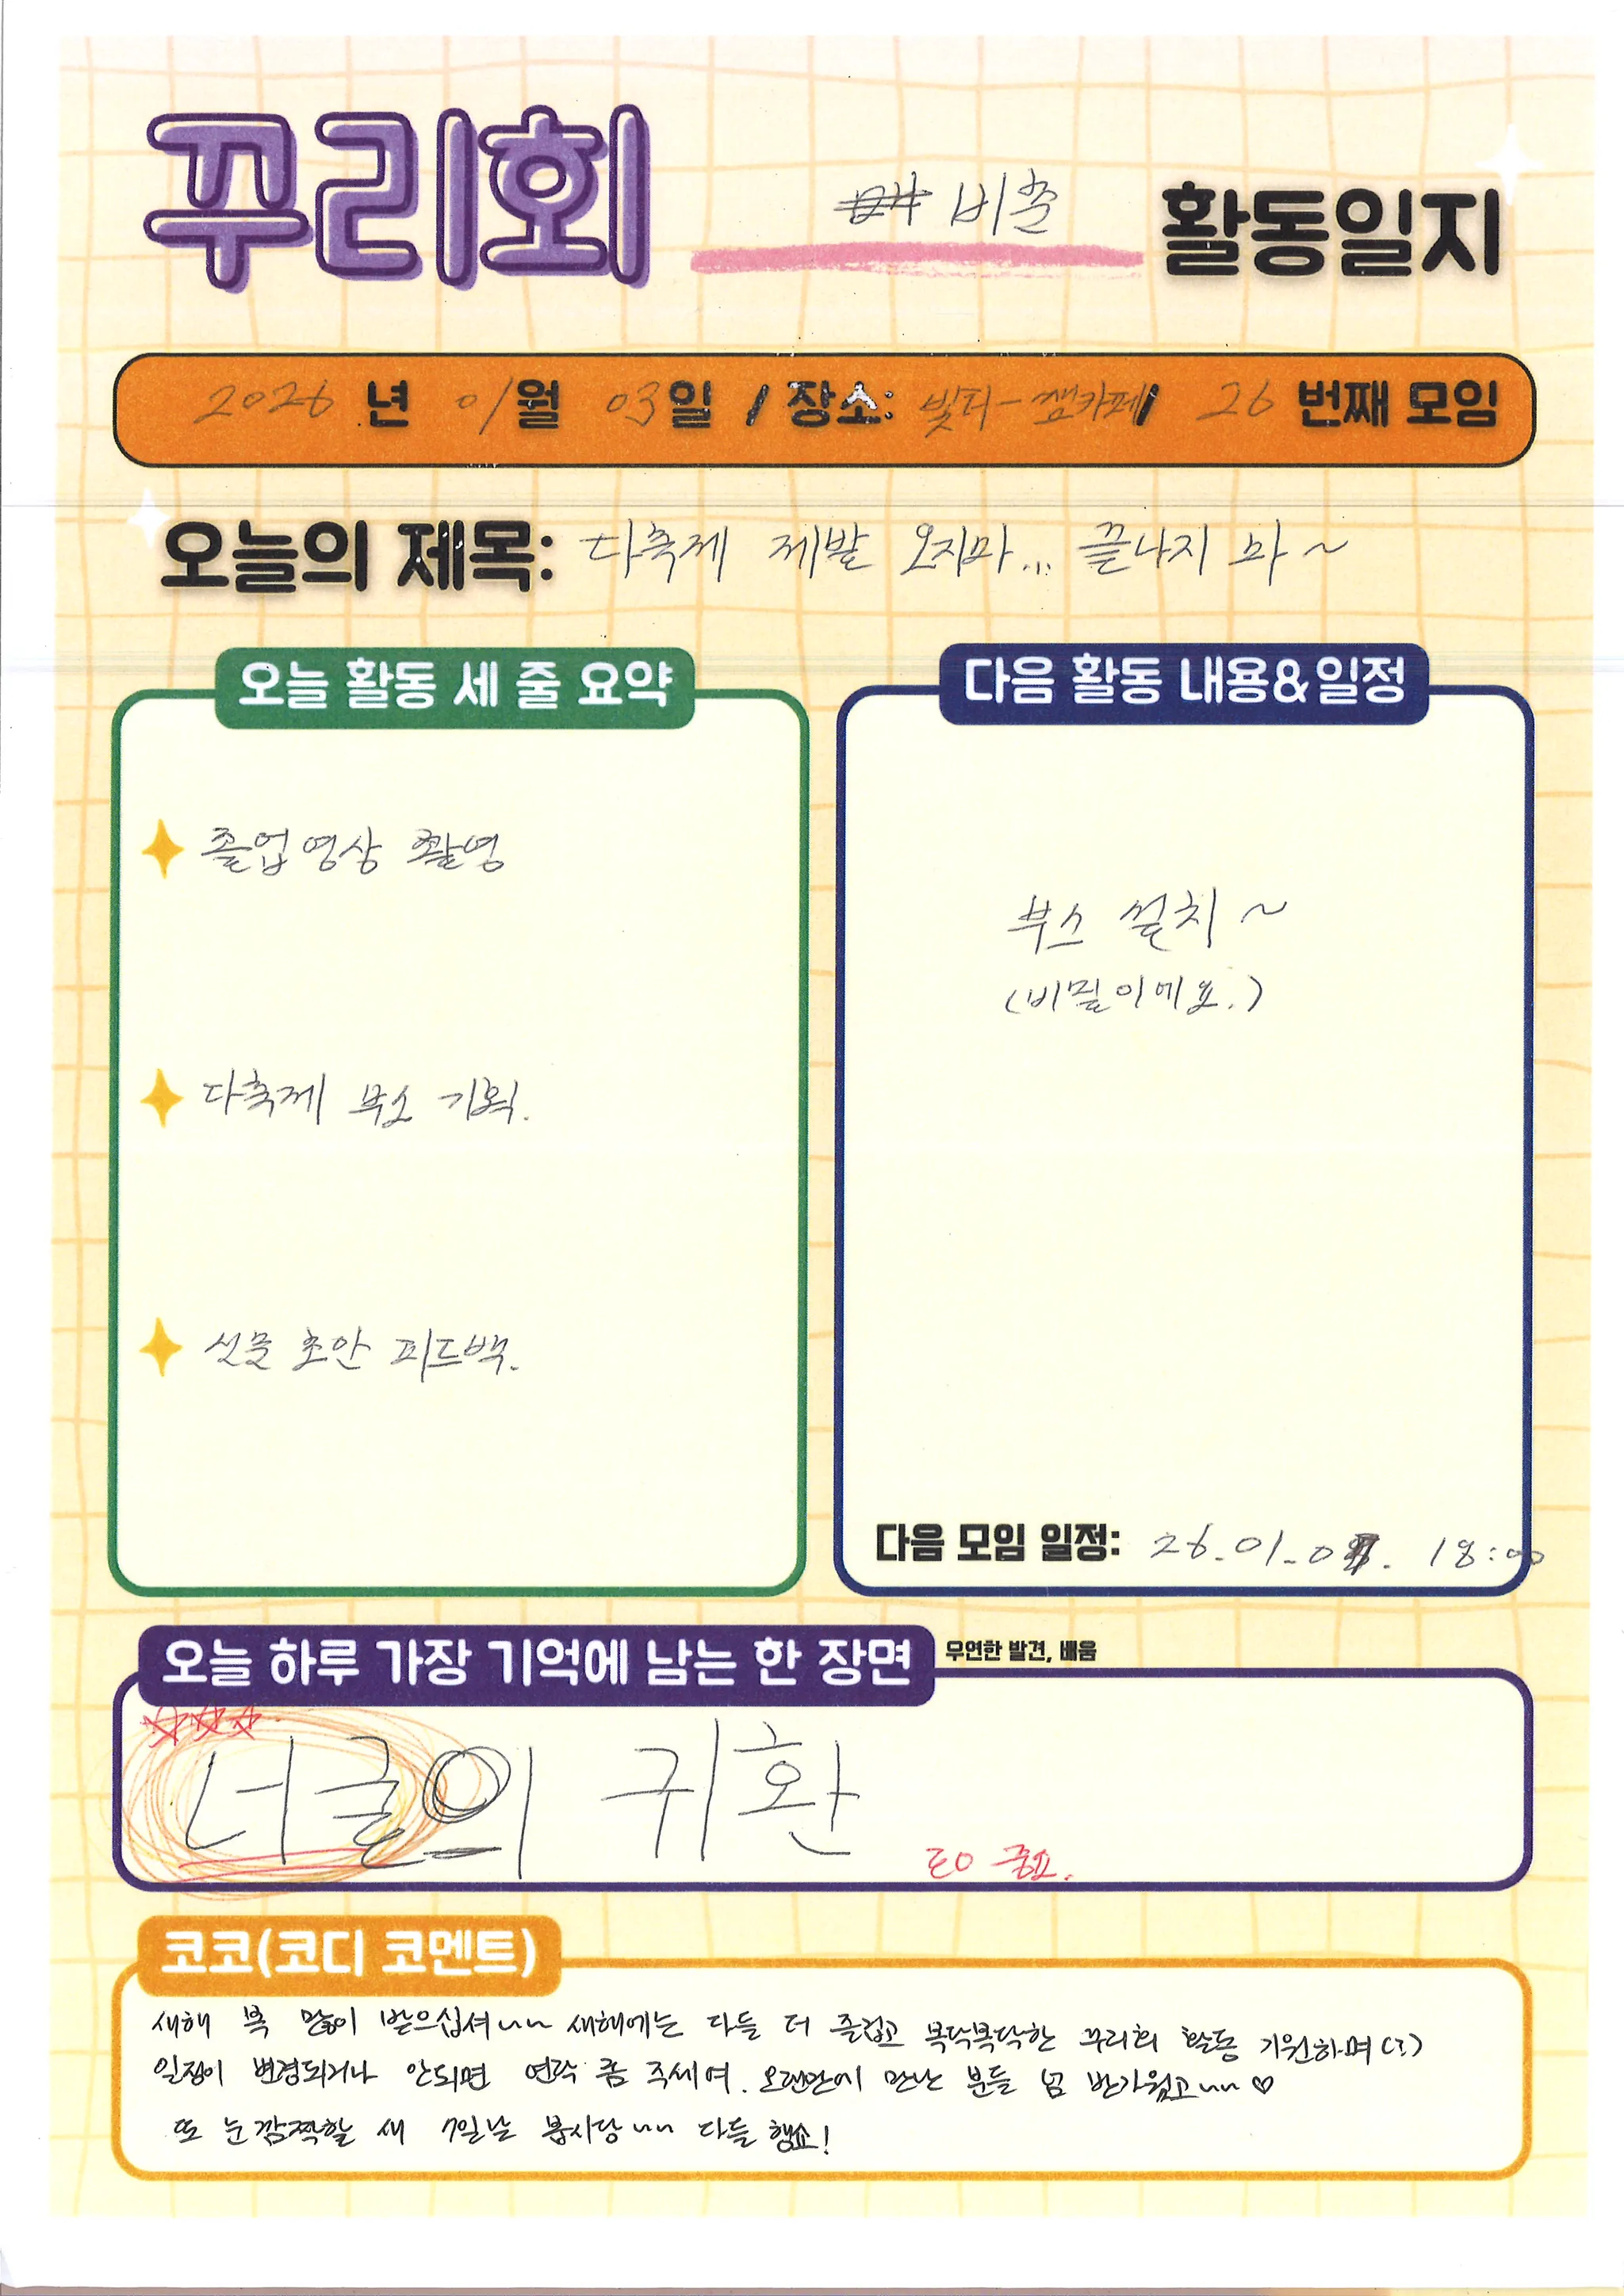 꾸리회 비쥴 활동일지
2026 년 01월 03일 / 장소: 빛터-잼카페 / 26 번째 모임
오늘의 제목: 다축제 제발 오지마... 끝나지 마~
오늘 활동 세 줄 요약
졸업영상 촬영
다축제 부스 기획.
선물 초안 피드백.
다음 활동 내용&일정
부스 설치 ~
(비밀이에요.)
다음 모임 일정: 26.01.07. 18:00
오늘 하루 가장 기억에 남는 한 장면 우연한 발견, 배움
너굴의 귀환
중요.
코코(코디 코멘트)
새해 복 많이 받으십셔~~ 새해에는 다들 더 즐겁고 복닥복닥한 꾸리회 활동 기원하며(?)
일정이 변경되거나 안되면 연락 좀 주세여. 오랜만에 만난 분들 넘 반가웠고~~ ♡
또 눈 깜짝할 새 7일날 봅시당~~ 다들 행쇼!